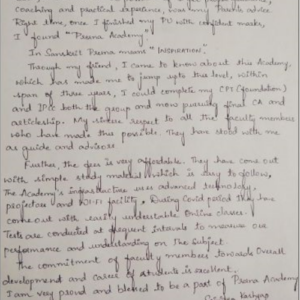 coaching and practical experience, was my Parents advice
Right time, once I finished my PU with confident marks,
I found "Prerna Academy"
In Sanskrit Prerna means "
Through my friend, I came to know about this Academy,
which has made me to jump upto this level, within
span of three years, I could complete my CPT (foundation)
and IPCC both the group and now pursuing final CA and
articleship. My sincere respect to all the faculty members
who have made this possible. They have stood with me
as guide and advisors
Further, the fees is very affordable. They have come out
with simple study material which is easy to follow,
The Academy's infrastructure uses advanced technology,
projectors and WI-FI facility, During Covid period they have
come out with easily understandable Online classes.
Tests are conducted at frequent intervals to measure our
performance and understanding on the Subject.
The commitment of faculty members towards Overall
development and career of students is excellent.
I am very proud and blessed to be a part of Prerna Academy
Kashyap